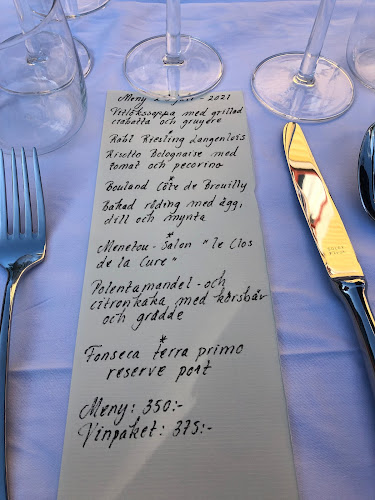 Meny 2021
Vitlökssoppa med grillad
ciabatta och gruyere
*
Rabl Riesling Langenlois
Risotto Bolognaise med
tomat och pecorino
*
Bouland Côte de Brouilly
Bakad röding med ägg,
dill och mynta
*
Menetou-Salon "le Clos
de la Cure"
Polentamandel- och
citronkaka med körsbär
och grädde
*
Fonseca terra primo
reserve port
Meny: 350:-
Vinpaket: 375:-